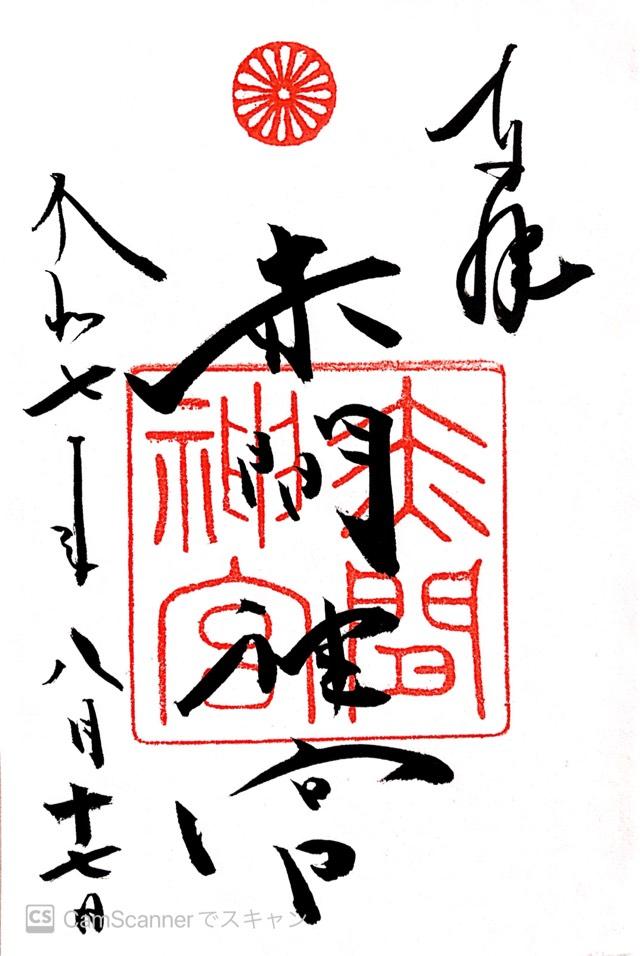 奉拝
赤間神宮
赤間神宮
令和七年八月十七日
CS CamScannerでスキャン